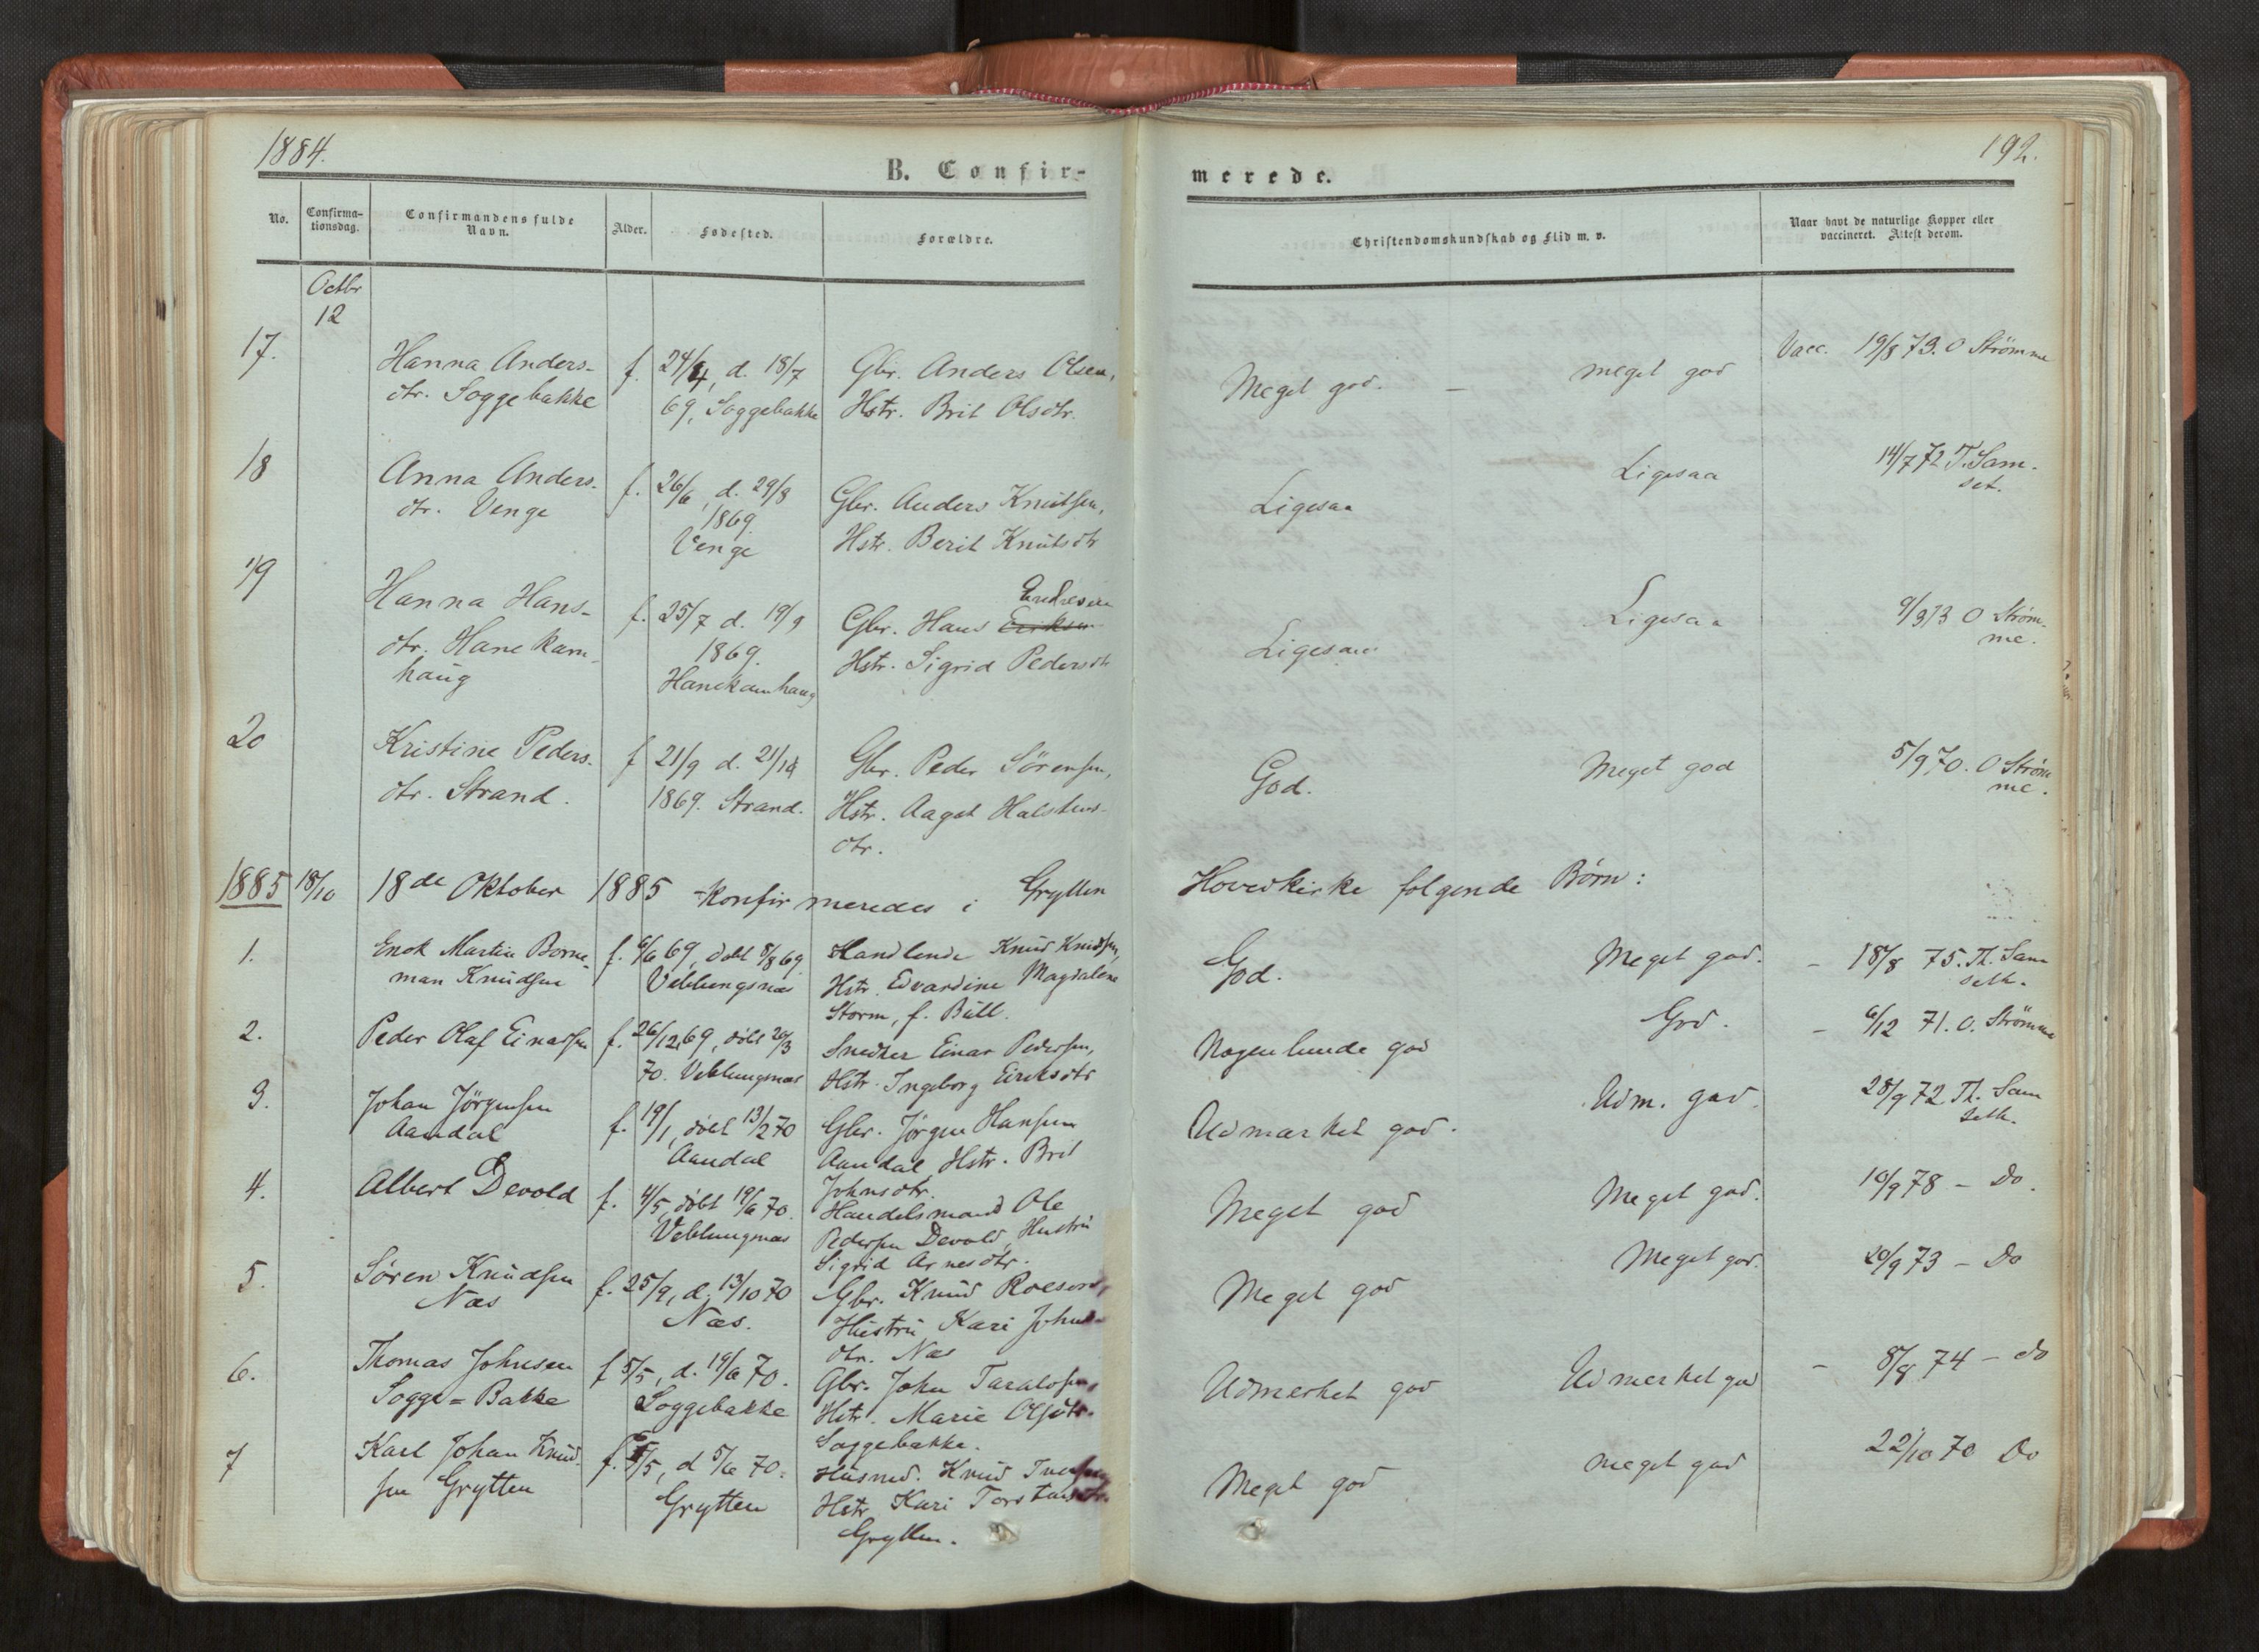 1884.
192.
B. Confir-
merede.
No.
Confirma-
tionsdag.
Confirmandens fulde
Navn.
Alder.
Fødested.
Forældre.
Christendomskundskab og Flid m. v.
Naar havt de naturlige Kopper eller
vaccineret. Attest derom.
Octbr
12
17. Hanna Anders- f. 24/4, d. 18/7 Gbr. Anders Olsen, Meget god. — meget god Vacc. 19/8 73. O Strömme
dtr. Soggebakke 69, Soggebakke Hstr. Brit Olsdtr.
18 Anna Anders- f. 26/6, d. 29/8 Gbr. Anders Knutsen, Ligesaa Ligesaa 14/7 72 T. Sam-
dtr. Venge 1869 Hstr. Berit Knutsdtr set.
Venge
19 Hanna Hans- f. 25/7 d. 19/9 Gbr. Hans Eriksen Endresen Ligesaa Ligesaa 9/9 73 O Ström-
dtr. Hanekam- 1869. Hstr. Sigrid Pedersdtr me.
haug Hanekamhaug
20 Kristine Peders- f 21/9 d. 21/10 Gbr. Peder Sörensen, God. Meget god 5/9 70. O Ström
dtr. Strand. 1869. Strand. Hstr. Aagot Halstens- me.
dtr.
1885 18/10 18de Oktober 1885 Konfirmeredes i Grytten Hovedkirke folgende Børn:
1. Enok Martin Borne- f. 6/6 69, døbt 8/8 69 Handlende Knud Knudsen, God. Meget god. — 18/8 75. Th. Sam
man Knudsen Veblungsnæs Hstr. Edvardine Magdalene seth.
Storm, f. Bull.
2. Peder Olaf Einarsen f. 26/12 69, døbt 20/3 Snedker Einar Pedersen, Nogenlunde god God. — 6/12 71. O. Strömme
70. Veblungsnæs Hstr. Ingeborg Eiriksdtr
3. Johan Jörgensen f. 19/1, døbt 13/2 70 Gbr. Jörgen Hansen Udmærket god. Udm. god. 28/9 72 Th. Sam
Aandal Aandal Aandal, Hstr. Brit seth.
Johnsdtr.
4. Albert Devold f. 4/5, døbt 19/6 70. Handelsmand Ole Meget god Meget god. 10/9 78 — Do.
Veblungsnæs Pedersen Devold, Hustru
Sigrid Arnesdtr.
5. Sören Knudsen f. 25/9, d. 13/10 70 Gbr. Knud Meget god Meget god. 20/9 73 — Do
Næs Næs. Hustru Kari Johns-
dtr. Næs
6. Thomas Johnsen f 5/5, d. 19/6 70. Gbr. John Taraldsen, Udmærket god Udmerket god — 8/8 74 — do
Sogge-Bakke Soggebakke Hstr. Marie Olsdtr.
Soggebakke.
7 Karl Johan Knud- f. 5/5, d 5/6 70. Husmd. Knud Iversen Meget god meget god 22/10 70 Do
sen Grytten Grytten Hstr Kari Torstensdtr.
Grytten.